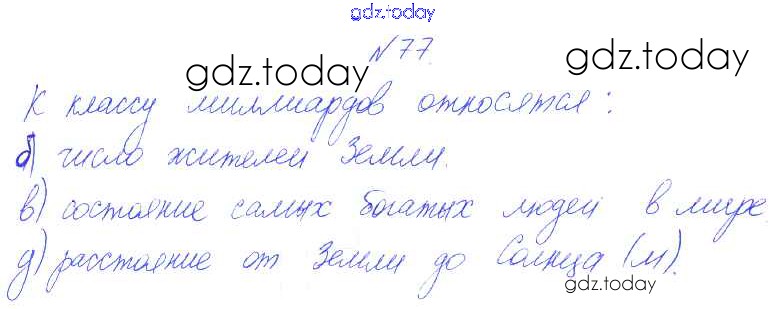 gdz.today
№77.
gdz.today
gdz.today
К классу миллиардов относятся:
б) число жителей Земли.
в) состояние самых богатых людей в мире
д) расстояние от Земли до Солнца (м).
gdz.today